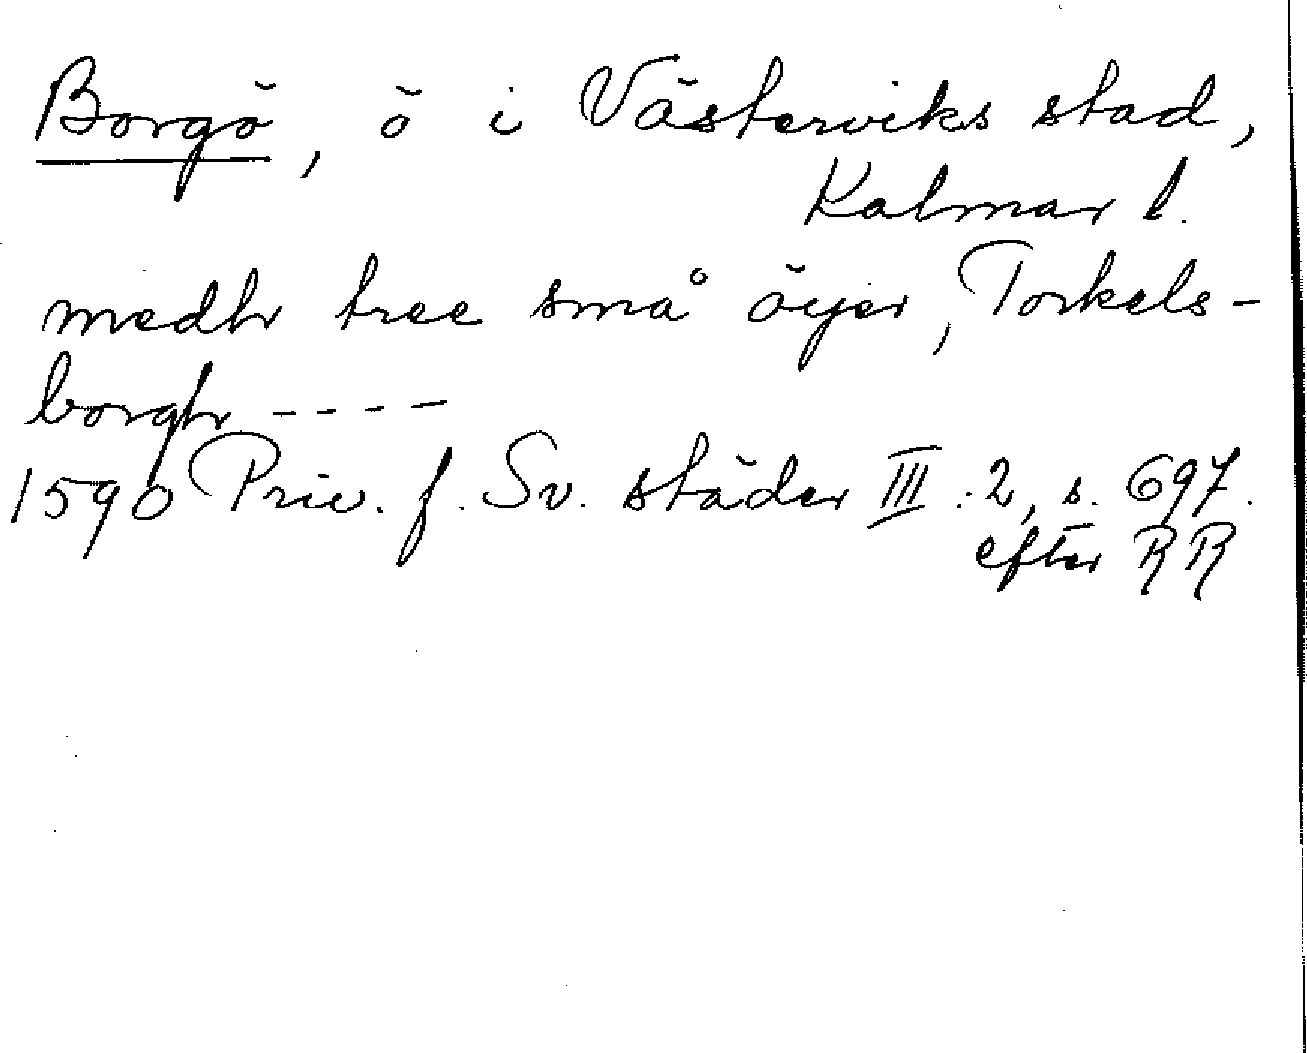 Borgö, ö i Västerviks stad,
Kalmar l.
medh tree små öijer, Torkels-
borgh ----
1590 Priv. f. Sv. städer III.2, s. 697.
efter RR